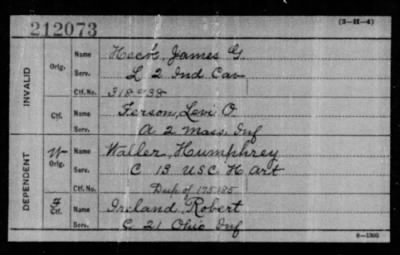 212073
(3-H-4)
INVALID
Orig. Name James G.
Serv. L 2 Ind Cav
Ctf. No.
Ctf. Name Ferson, Levi O
Serv. A 2 Mass. Inf
DEPENDENT
W Orig. Name Waller, Humphrey
Serv. C 13 USC H Art
Ctf. No. Dup of 175185
Ctf. Name Ireland, Robert
Serv. C 21 Ohio Inf